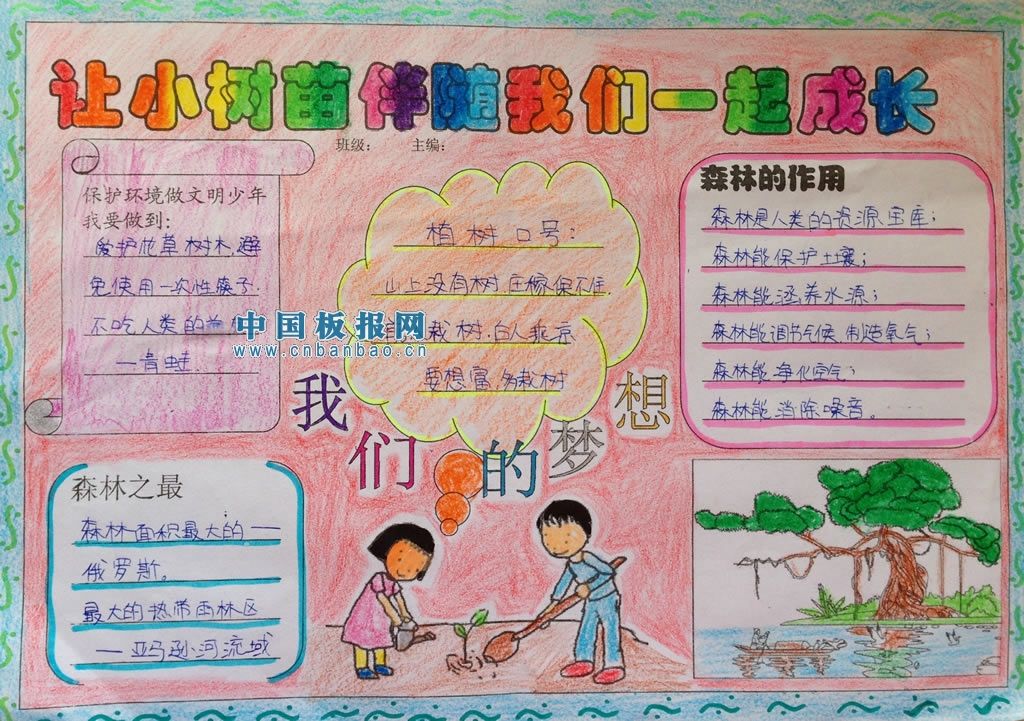 让小树苗伴随我们一起成长
班级： 主编：
保护环境做文明少年
我要做到：
爱护花草树木，避
免使用一次性筷子，
不吃人类的
—青蛙.
植树口号：
山上没有树，庄稼保不住
栽树，百人乘凉
要想富，多栽树
我们的梦想
森林的作用
森林是人类的资源宝库；
森林能保护土壤；
森林能涵养水源；
森林能调节气候，制造氧气；
森林能净化空气；
森林能消除噪音。
森林之最
森林面积最大的—
俄罗斯。
最大的热带雨林区
—亚马逊河流域
中国板报网
www.cnbanbao.cn